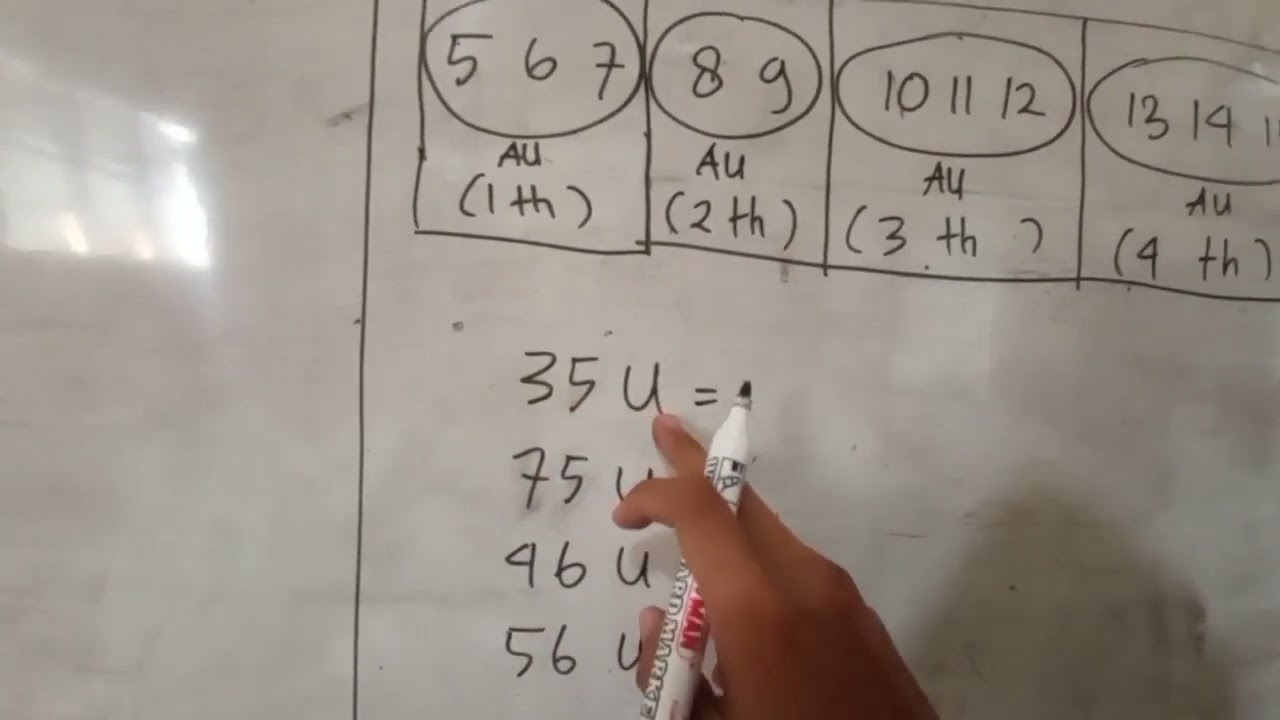 5 6 7
AU
(1 th)
8 9
AU
(2 th)
10 11 12
AU
(3 th)
13 14
AU
(4 th)
35 U =
75 U
46 U
56 U